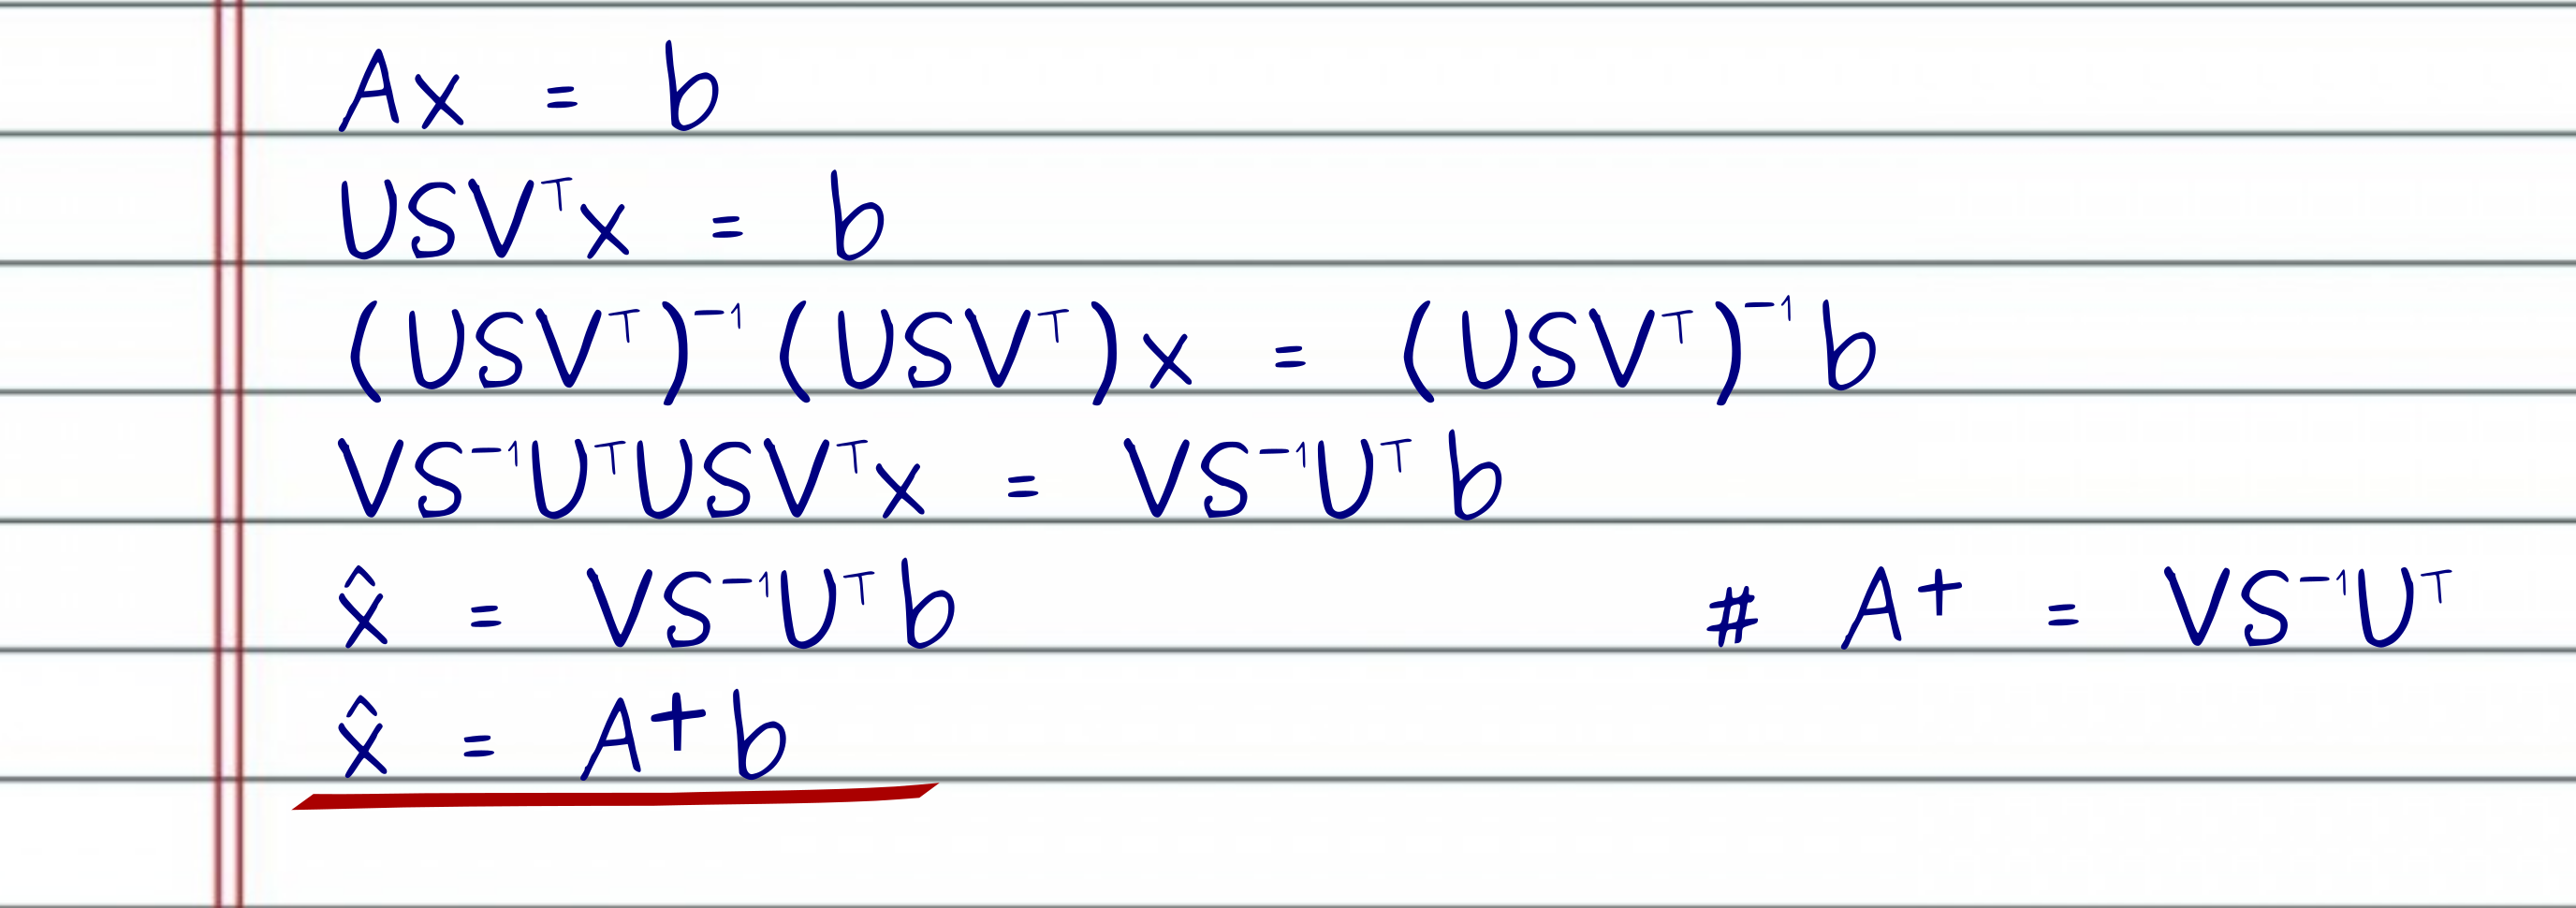 Ax = b
USVᵀx = b
(USVᵀ)⁻¹ (USVᵀ)x = (USVᵀ)⁻¹b
VS⁻¹UᵀUSVᵀx = VS⁻¹Uᵀb
x̂ = VS⁻¹Uᵀb # A⁺ = VS⁻¹Uᵀ
x̂ = A⁺b